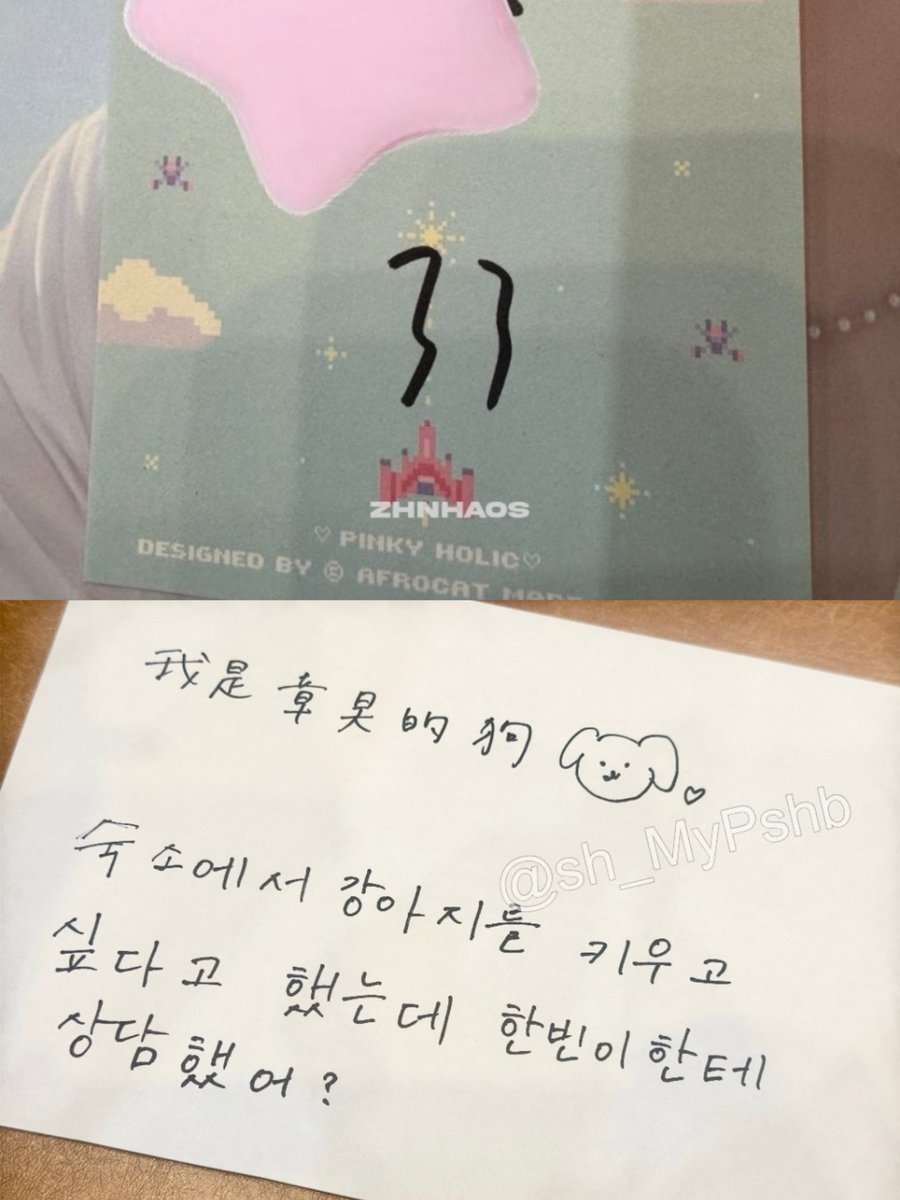 ZHNHAOS
♡ PINKY HOLIC♡
DESIGNED BY © AFROCAT
我是章昊的狗 ♡
@sh_MyPshb
숙소에서 강아지를 키우고
싶다고 했는데 한빈이한테
상담했어?